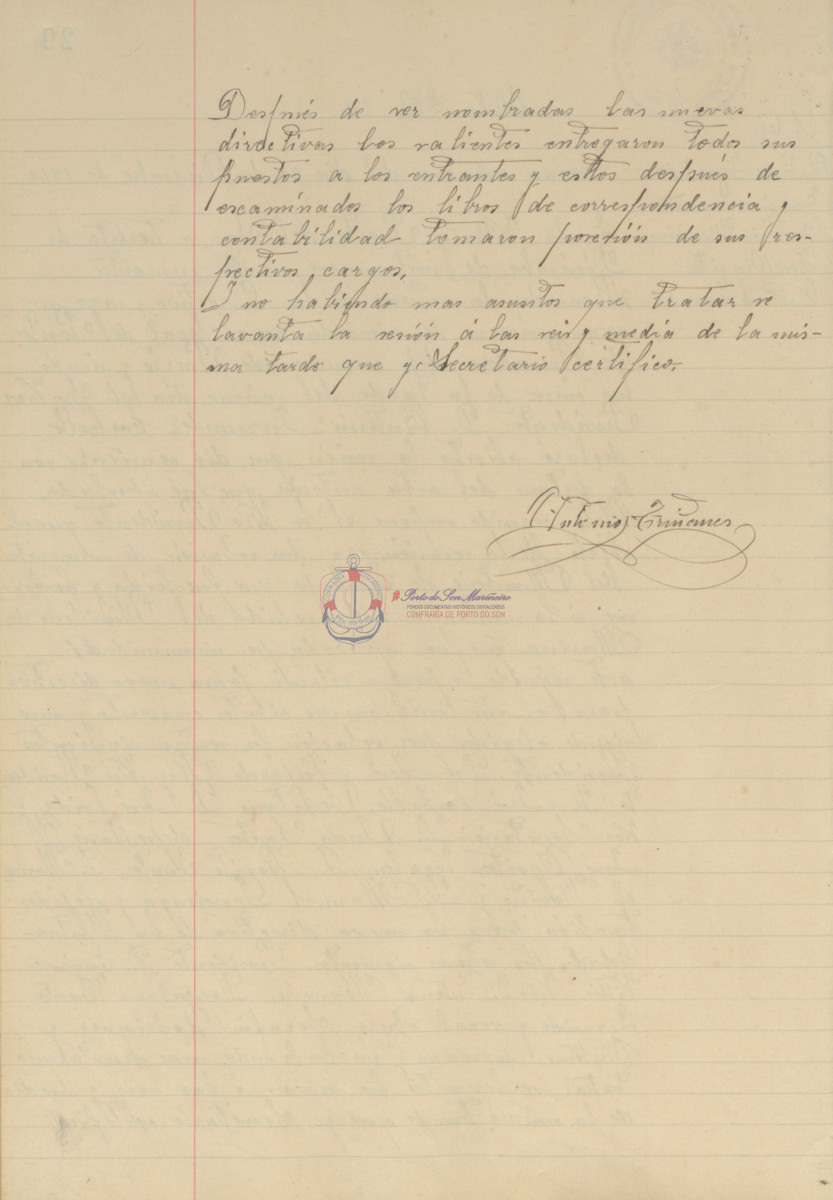 Después de ver nombradas las nuevas
directivas los salientes entregaron todos sus
puestos a los entrantes y estos después de
escaminados los libros de correspondencia y
contabilidad tomaron posesión de sus res-
pectivos cargos.
Y no habiendo mas asuntos que tratar se
lavanta la sesión á las seis y media de la mis-
ma tarde que yo Secretario certifico.
Antonio
Porto do Son Mariñeiro
FONDOS DOCUMENTAIS HISTÓRICOS DIXITALIZADOS
CONFRARÍA DE PORTO DO SON